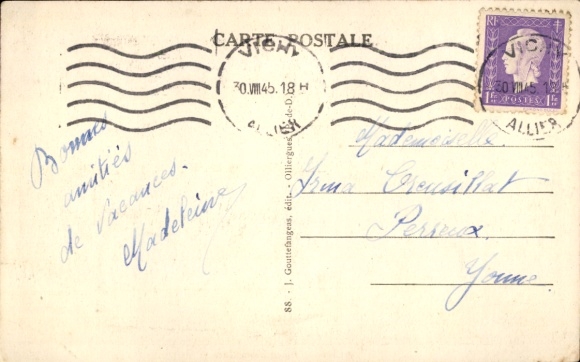 CARTE POSTALE
VICHY
30 VIII 45. 18 H
ALLIER
RF
POSTES
1Fr 1Fr
VICHY
30 VIII 45. 18 H
ALLIER
Bonnes
amitiés
de Vacances.
Madeleine
88. - J. Gouttefangeas, édit. - Olliergues, P.-de-D.
Mademoiselle
Irma Creusillat
Perreux
Yonne